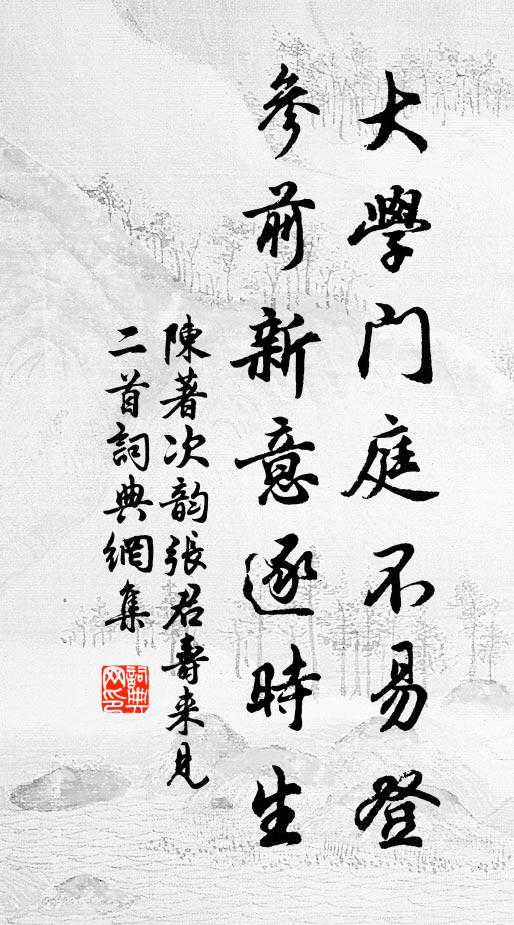 大學门庭不易登
參前新意逐時生
陳著次韵張君壽来見
二首詞典網集
詞典網印